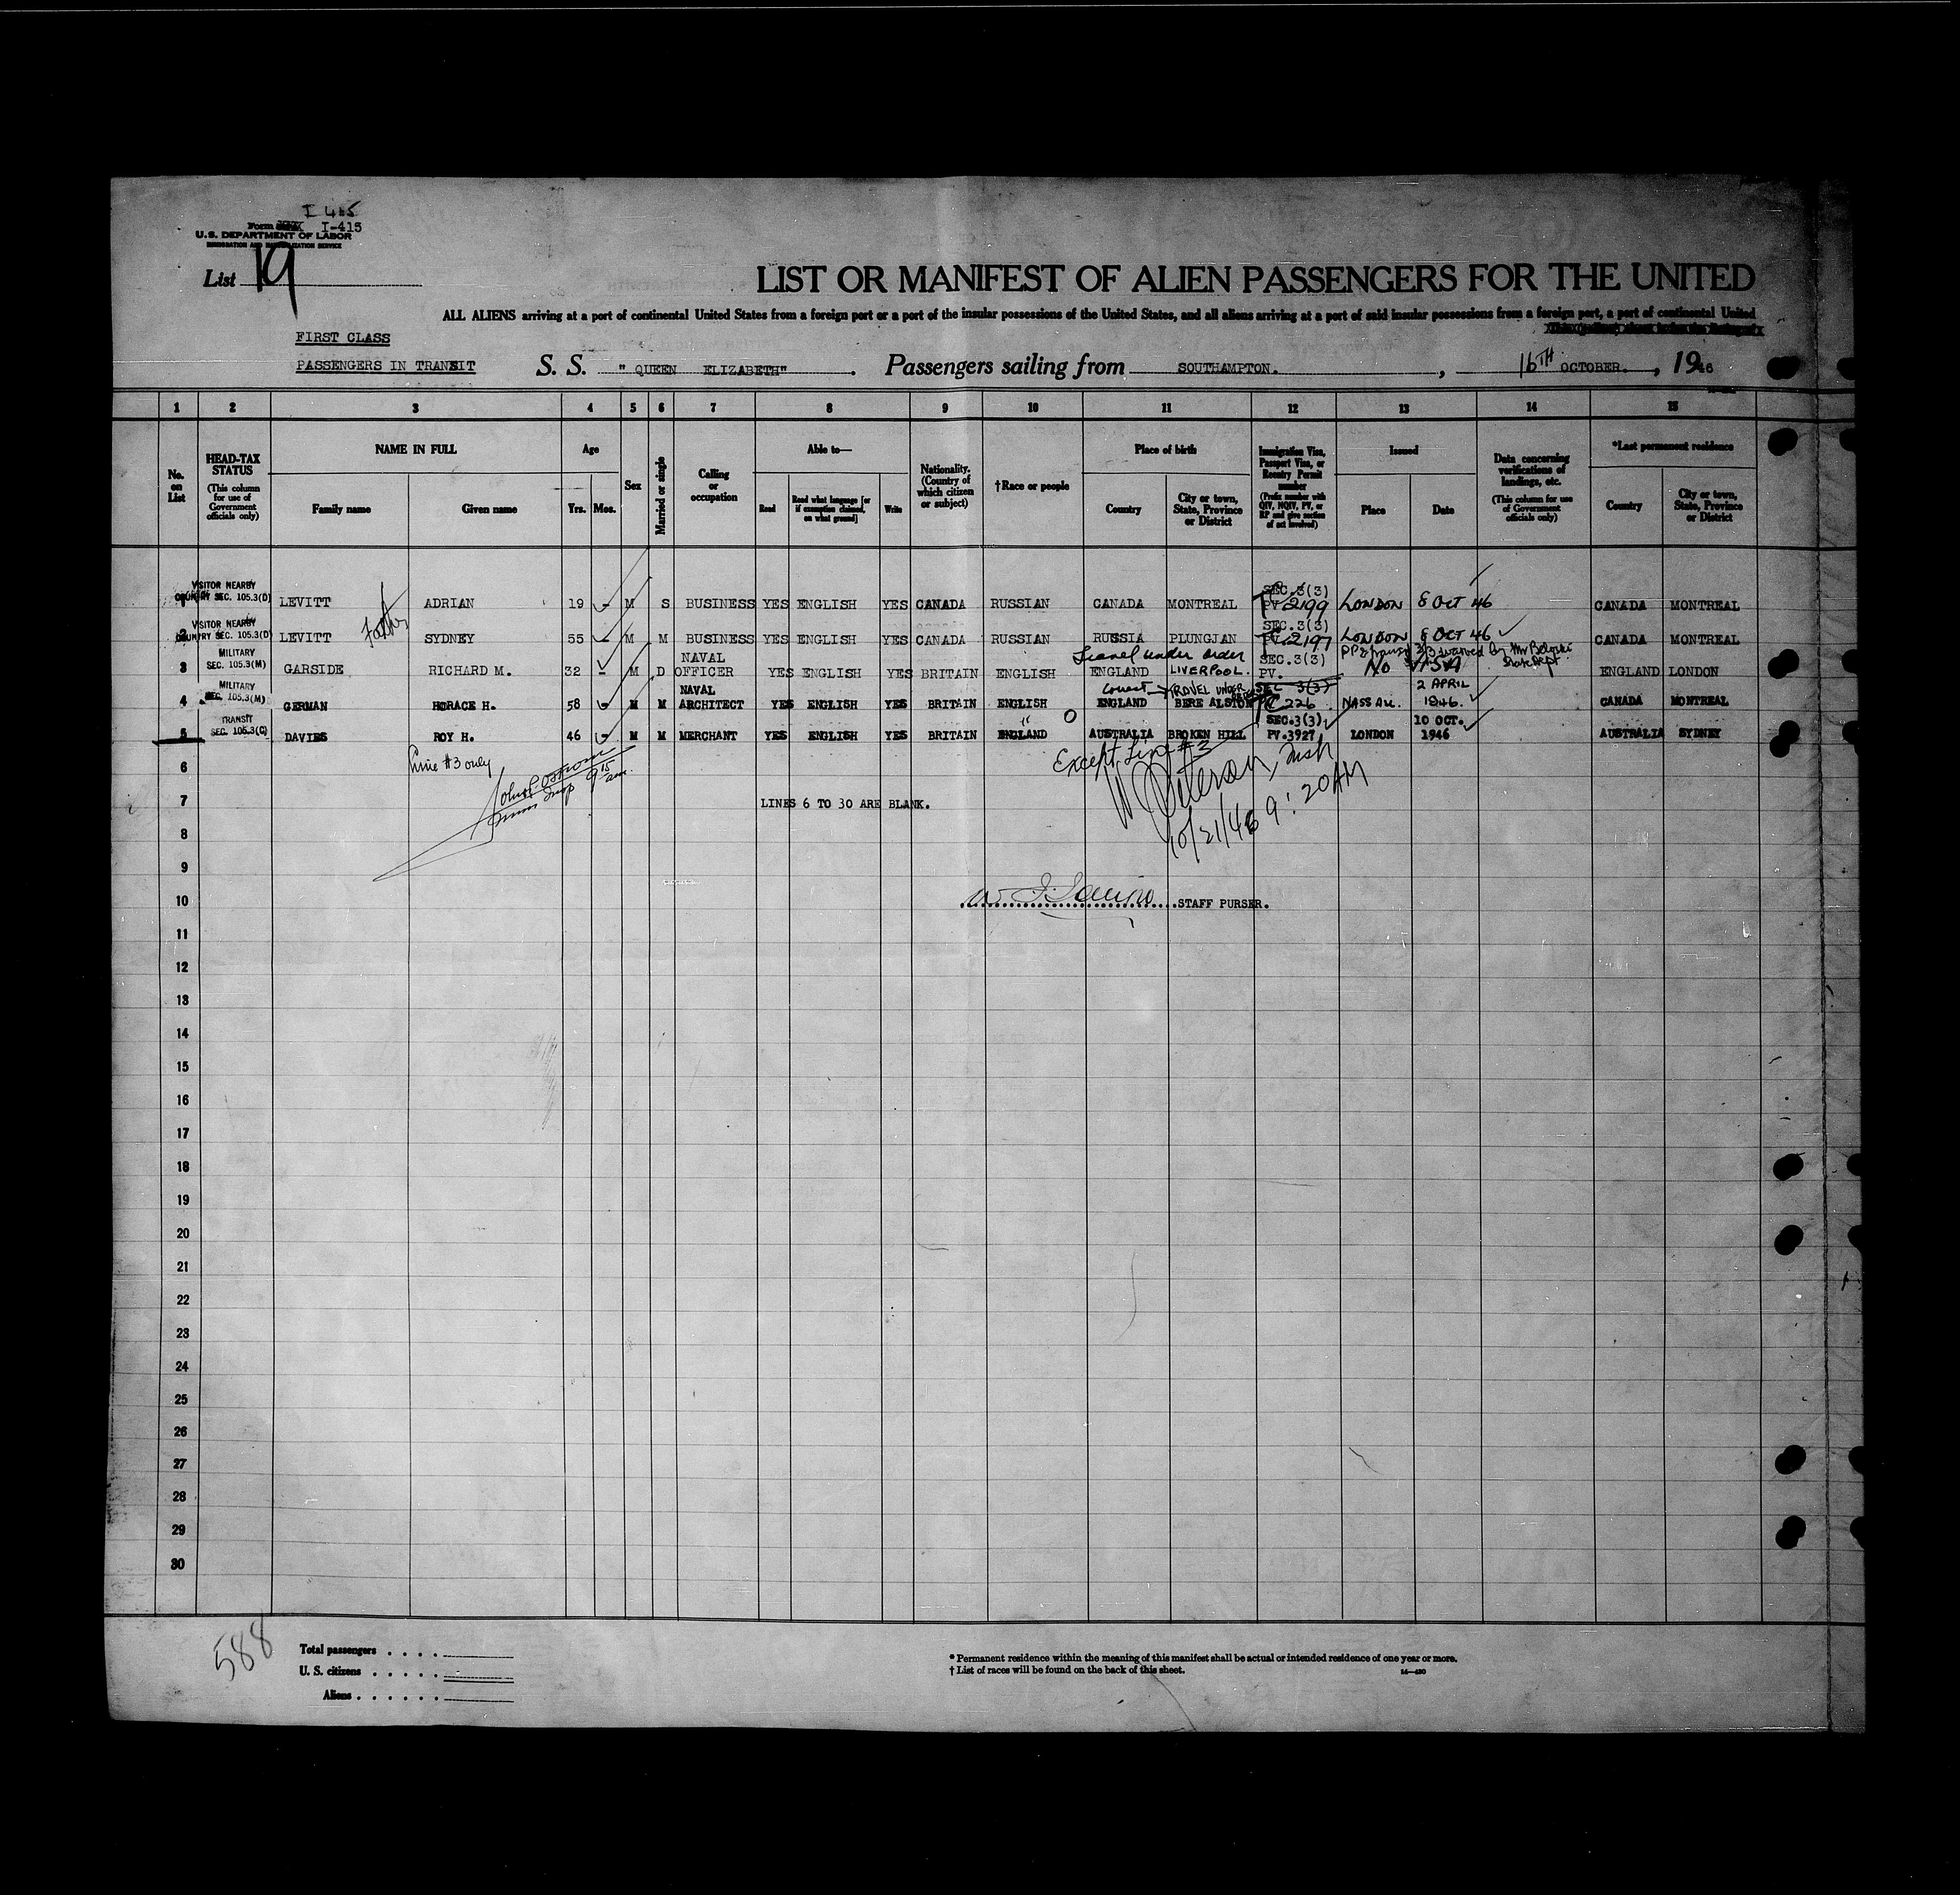 I 415
Form I-415
U.S. DEPARTMENT OF LABOR
IMMIGRATION AND NATURALIZATION SERVICE
List 19
LIST OR MANIFEST OF ALIEN PASSENGERS FOR THE UNITED
ALL ALIENS arriving at a port of continental United States from a foreign port or a port of the insular possessions of the United States, and all aliens arriving at a port of said insular possessions from a foreign port, a port of continental United
FIRST CLASS
PASSENGERS IN TRANSIT S. S. " QUEEN ELIZABETH" . Passengers sailing from SOUTHAMPTON. , 16TH OCTOBER. , 1946
1 2 3 4 5 6 7 8 9 10 11 12 13 14 15
No. on List
HEAD-TAX STATUS (This column for use of Government officials only)
NAME IN FULL Family name Given name
Age Yrs. Mos.
Sex
Married or single
Calling or occupation
Able to— Read Read what language [or if exemption claimed, on what ground] Write
Nationality. (Country of which citizen or subject)
†Race or people
Place of birth Country City or town, State, Province or District
Immigration Visa, Passport Visa, or Reentry Permit number (Prefix number with QIV, NQIV, PV, or RP and give section of act involved)
Issued Place Date
Data concerning verifications of landings, etc. (This column for use of Government officials only)
*Last permanent residence Country City or town, State, Province or District
VISITOR NEARBY SEC. 3(3)
1 COUNTRY SEC. 105.3(D) LEVITT ADRIAN 19 - M S BUSINESS YES ENGLISH YES CANADA RUSSIAN CANADA MONTREAL PV 2199 LONDON 8 OCT 46 CANADA MONTREAL
Father
VISITOR NEARBY SEC.3(3)
2 COUNTRY SEC. 105.3(D) LEVITT SYDNEY 55 - M M BUSINESS YES ENGLISH YES CANADA RUSSIAN RUSSIA PLUNGJAN PV 2197 LONDON 8 OCT 46 CANADA MONTREAL
MILITARY NAVAL Travel under order SEC.3(3) waived by Mr State Dept.
3 SEC. 105.3(M) GARSIDE RICHARD M. 32 - M D OFFICER YES ENGLISH YES BRITAIN ENGLISH ENGLAND LIVERPOOL. PV. No VISA ENGLAND LONDON
MILITARY NAVAL TRAVEL UNDER SEC 3(3) 2 APRIL
4 SEC. 105.3(M) GERMAN HORACE H. 58 - M M ARCHITECT YES ENGLISH YES BRITAIN ENGLISH ENGLAND BERE ALSTON 226 NASSAU. 1946. CANADA MONTREAL
TRANSIT " O SEC.3(3) 10 OCT.
5 SEC. 105.3(C) DAVIES ROY H. 46 - M M MERCHANT YES ENGLISH YES BRITAIN ENGLAND AUSTRALIA BROKEN HILL PV.3927 LONDON 1946 AUSTRALIA SYDNEY
6 Line #3 only Except Line #3
9 15 am.
7 LINES 6 TO 30 ARE BLANK.
10/21/46 9:20 AM
8
9
10 STAFF PURSER.
11
12
13
14
15
16
17
18
19
20
21
22
23
24
25
26
27
28
29
30
588
Total passengers . . . .
U. S. citizens . . . . .
Aliens . . . . . .
* Permanent residence within the meaning of this manifest shall be actual or intended residence of one year or more.
† List of races will be found on the back of this sheet.